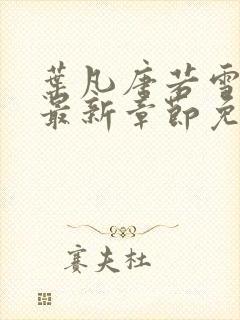 葉凡唐若雪
最新章節免
賽夫杜